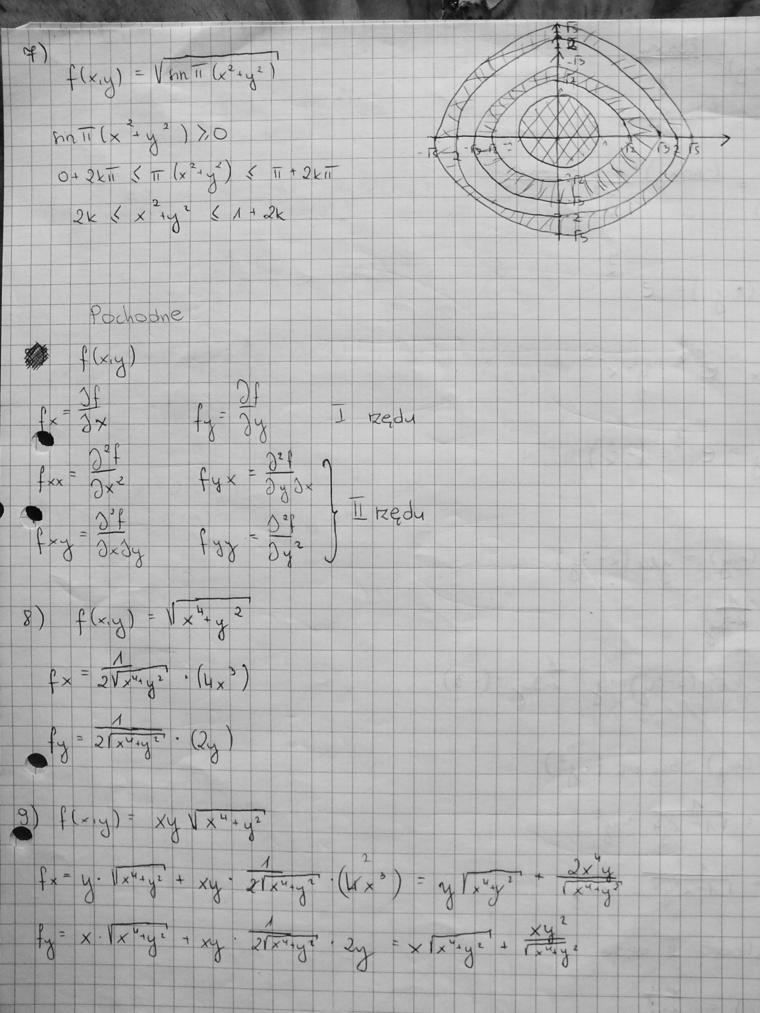 7)
f(x,y) = √(sin π (x²+y²))
sin π(x²+y²) ≥ 0
0+2kπ ≤ π(x²+y²) ≤ π+2kπ
2k ≤ x²+y² ≤ 1+2k
√5
2
√3
√2
-√5 -2 -√3 -√2 √2 √3 2 √5
-√2
-√3
-2
-√5
Pochodne
f(x,y)
fx = ∂f/∂x fy = ∂f/∂y I rzędu
fxx = ∂²f/∂x² fyx = ∂²f/∂y∂x
II rzędu
fxy = ∂²f/∂x∂y fyy = ∂²f/∂y²
8) f(x,y) = √(x⁴+y²)
fx = 1/(2√(x⁴+y²)) · (4x³)
fy = 1/(2√(x⁴+y²)) · (2y)
9) f(x,y) = xy √(x⁴+y²)
fx = y · √(x⁴+y²) + xy · 1/(2√(x⁴+y²)) · (4x³) = y √(x⁴+y²) + 2x⁴y/√(x⁴+y²)
fy = x · √(x⁴+y²) + xy · 1/(2√(x⁴+y²)) · 2y = x √(x⁴+y²) + xy²/√(x⁴+y²)